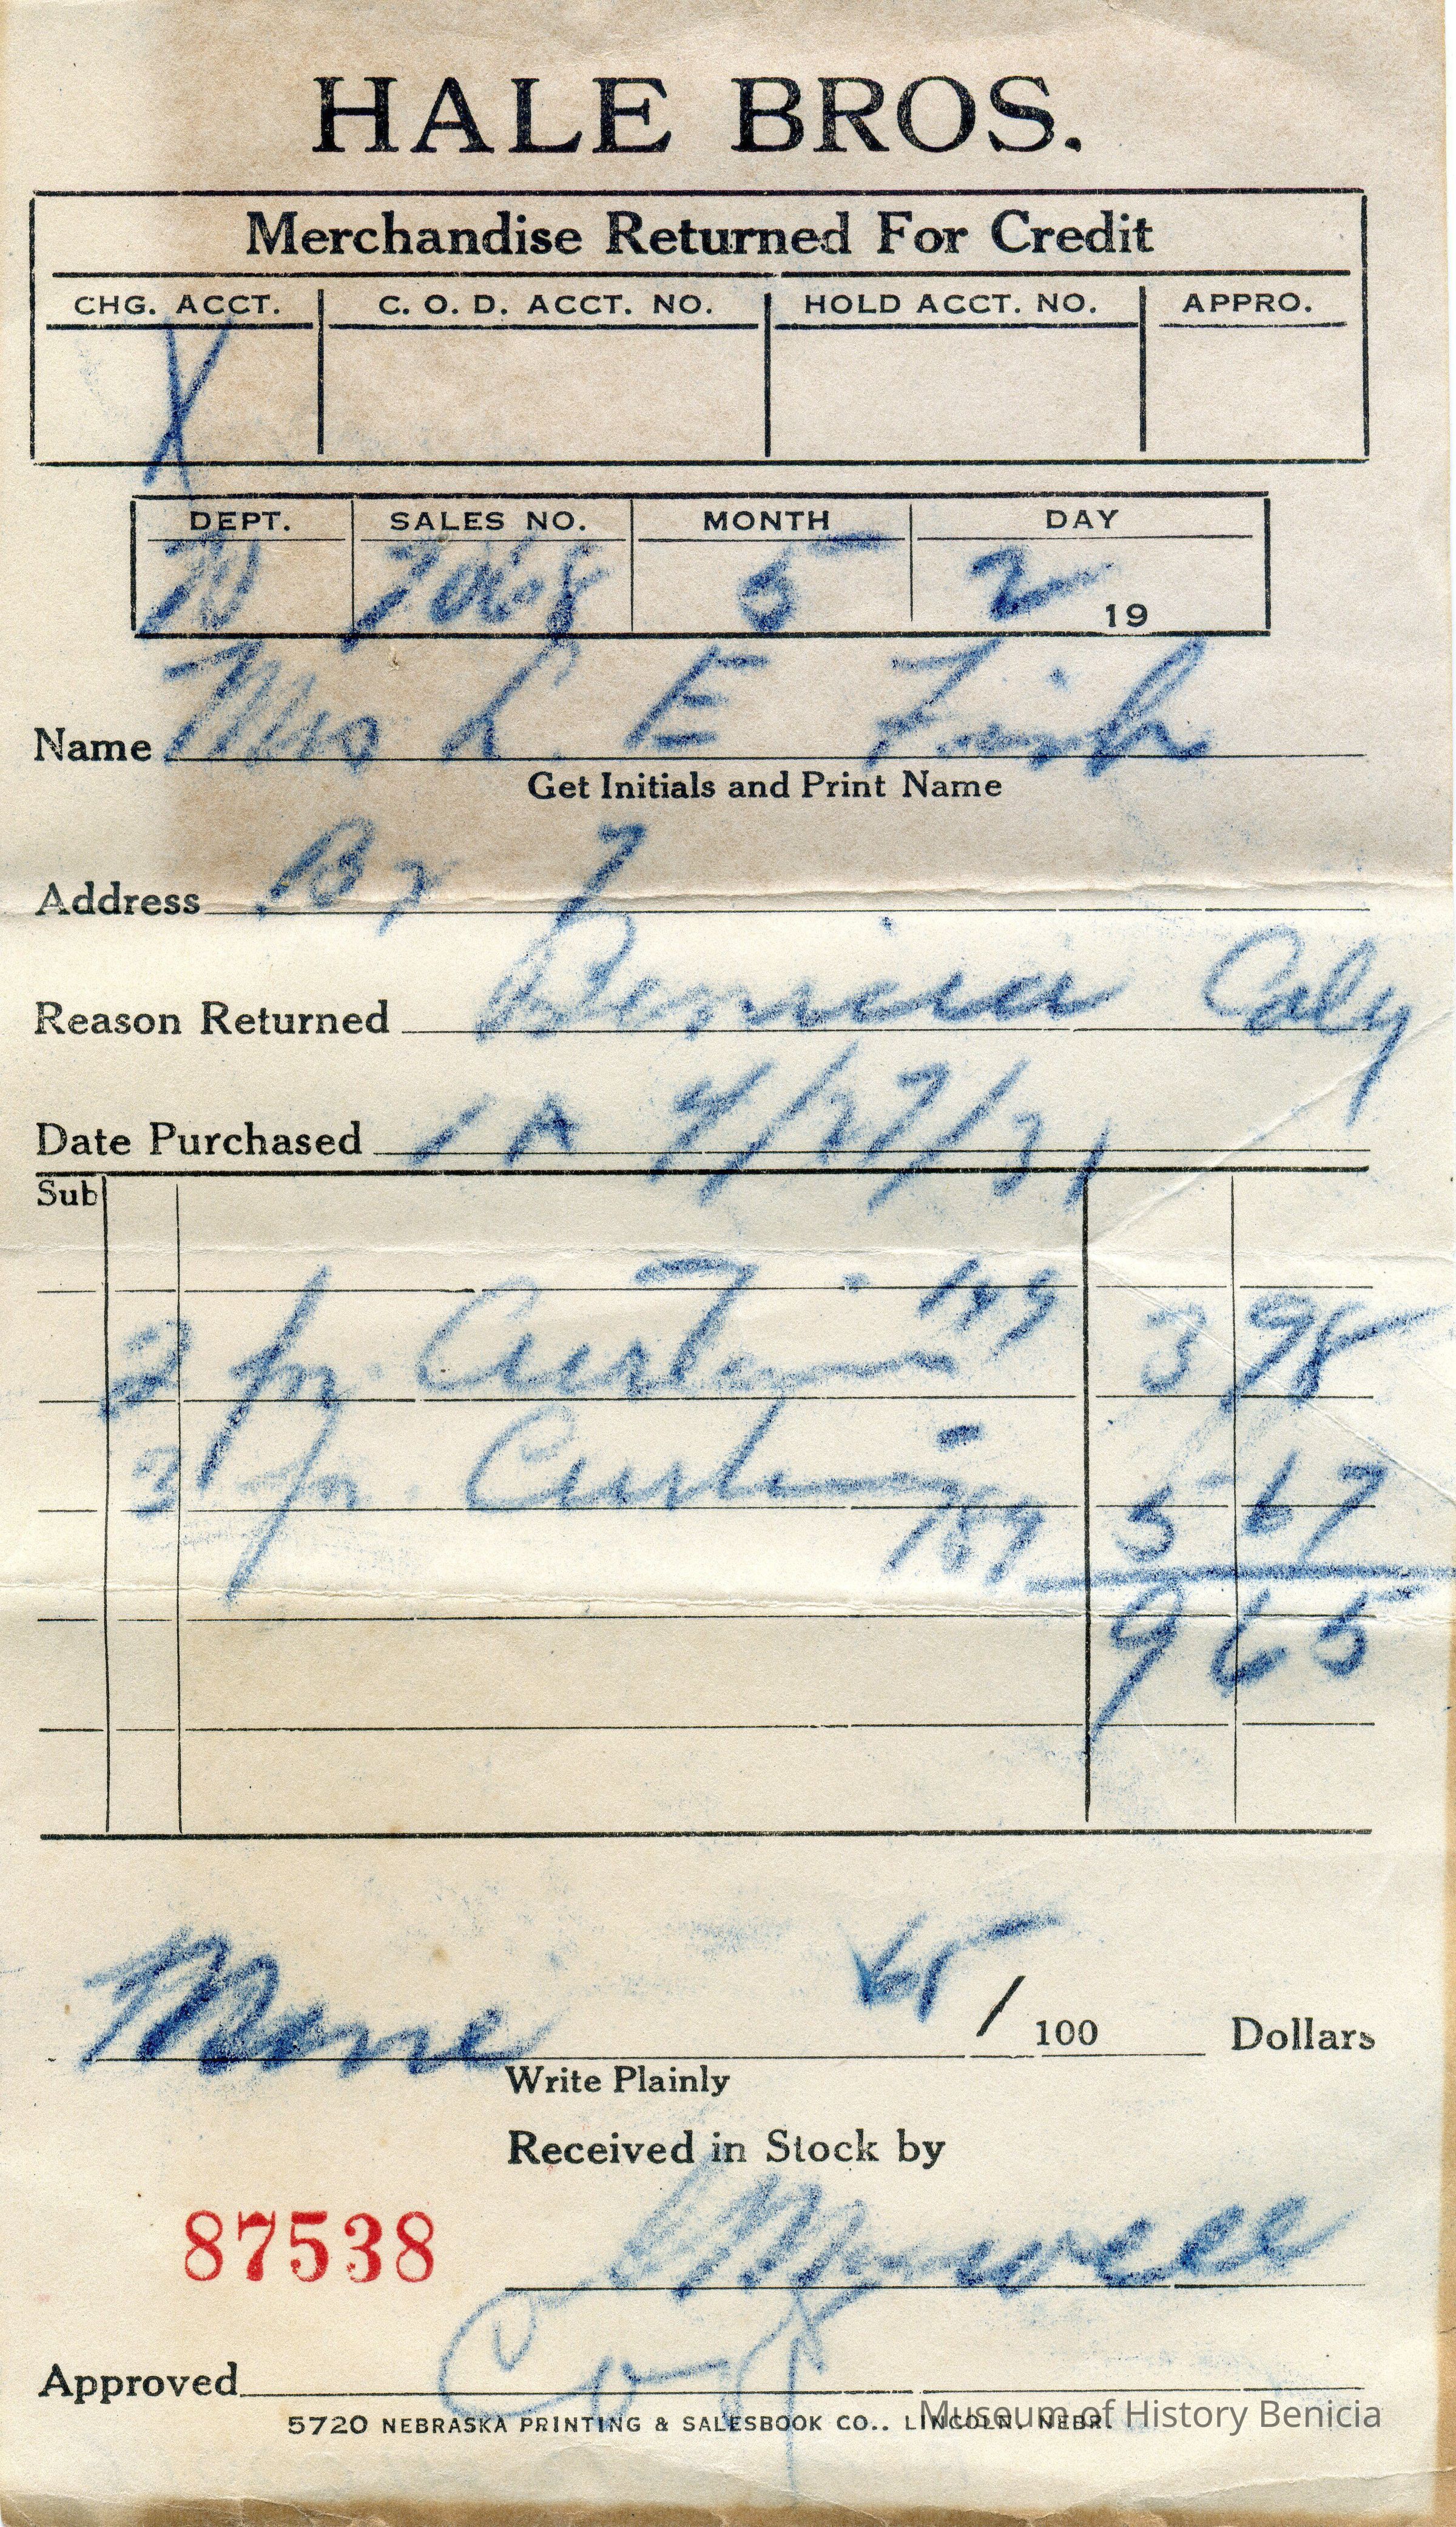 HALE BROS.
Merchandise Returned For Credit
CHG. ACCT. C. O. D. ACCT. NO. HOLD ACCT. NO. APPRO.
X
DEPT. SALES NO. MONTH DAY
70 7068 5 2 19
Name Mrs L. E Fish
Get Initials and Print Name
Address Bx 7
Reason Returned Benicia Caly
Date Purchased 1 A 4/27/31
Sub
2 pr. Curtain 199 3 98
3 pr. Curtain 189 5 67
9 65
65 / 100 Dollars
Write Plainly
Received in Stock by
87538
Approved
5720 NEBRASKA PRINTING & SALESBOOK CO.. LINCOLN. NEBR.
Museum of History Benicia